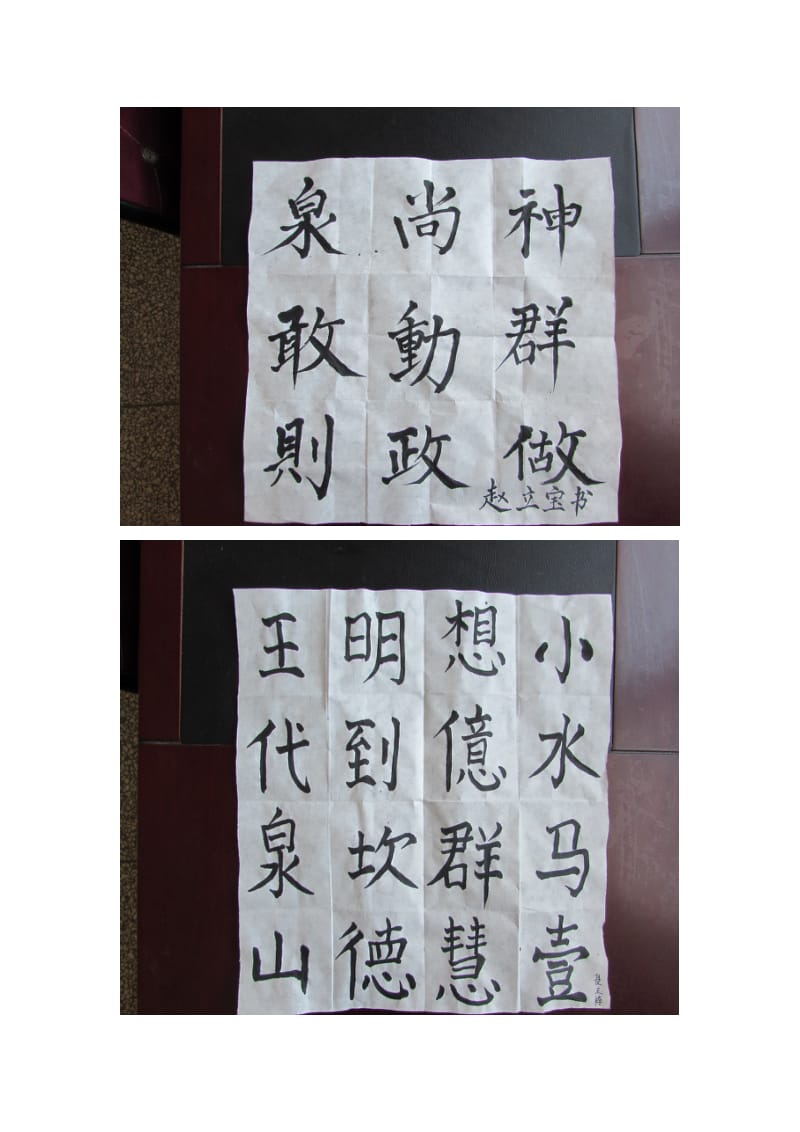 神群做
尚動政
泉敢則
赵立宝书
小水马壹
想億群慧
明到坎德
王代泉山